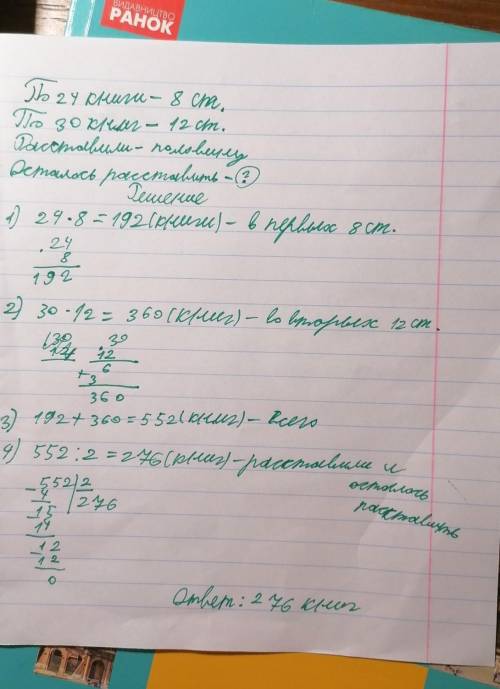 ВИДАВНИЦТВО
РАНОК
По 24 книги - 8 ст.
По 30 книг - 12 ст.
Расставили - половину
Осталось расставить - ?
Решение
1) 24 · 8 = 192 (книги) - в первых 8 ст.
. 24
8
192
2) 30 · 12 = 360 (книг) - во вторых 12 ст.
. 30
12
6
+ 3
360
3) 192 + 360 = 552 (книг) - всего
4) 552 : 2 = 276 (книг) - расставили и
осталось
расставить
- 552 | 2
4 | 276
- 15
14
- 12
12
0
Ответ: 276 книг